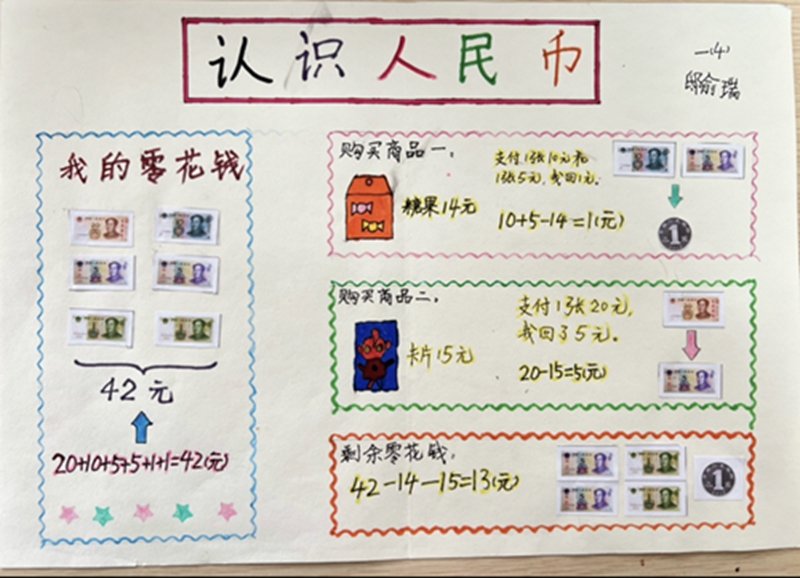 认识人民币
一(4)
邱俞瑞
我的零花钱
42元
20+10+5+5+1+1=42(元)
购买商品一：
糖果14元
支付1张10元和
1张5元，找回1元。
10+5-14=1(元)
1
购买商品二：
卡片15元
支付1张20元，
找回了5元。
20-15=5(元)
剩余零花钱：
42-14-15=13(元)
1